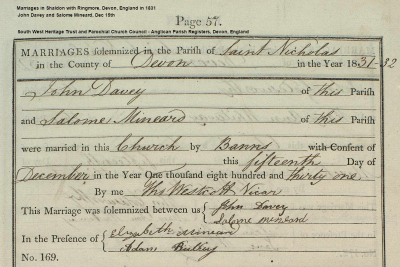 Marriages in Shaldon with Ringmore, Devon, England in 1831
John Davey and Salome Mineard, Dec 15th
South West Heritage Trust and Parochial Church Council - Anglican Parish Registers, Devon, England
Page 57.
MARRIAGES solemnized in the Parish of Saint Nicholas
in the County of Devon in the Year 1831-32
John Davey of this Parish
and Salome Mineard of this Parish
were married in this Church by Banns with Consent of
this fifteenth Day of
December in the Year One thousand eight hundred and thirty one
By me Thos Westcott Vicar
This Marriage was solemnized between us John Davey
Salome mineard
In the Presence of Elizabeth Mineard
Adam
No. 169.